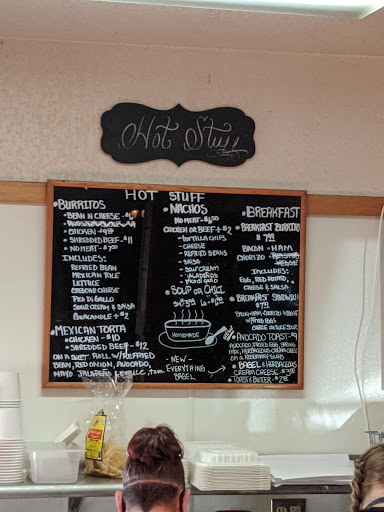 Hot Stuff
HOT STUFF
BURRITOS
BEAN N CHEESE
CHICKEN
SHREDDED BEEF - $11
NO MEAT - $7.50
INCLUDES:
REFRIED BEAN
MEXICAN RICE
LETTUCE
CHEDDAR CHEESE
PICO DI GALLO
SOUR CREAM & SALSA
GUACAMOLE + $2
MEXICAN TORTA
CHICKEN - $10
SHREDDED BEEF - $12
ON A SWEET ROLL W/REFRIED
BEAN, RED ONION, AVOCADO,
MAYO JALAPEÑO LETTUCE, TOM.
NACHOS
NO MEAT
CHICKEN OR BEEF + $2
TORTILLA CHIPS
CHEESE
REFRIED BEANS
SALSA
SOUR CREAM
JALAPEÑOS
PICO DI GALLO
SOUP OR CHILI
HOMEMADE
- NEW -
EVERYTHING
BAGEL
BREAKFAST
BREAKFAST BURRITO
BACON - HAM
CHORIZO
INCLUDES:
EGG, RED POTATO,
CHEESE & SALSA
BREAKFAST SANDWICH
W/FRIED EGGS
AVOCADO TOAST - $9
BAGEL & HERBACEOUS
CREAM CHEESE
TOAST & BUTTER